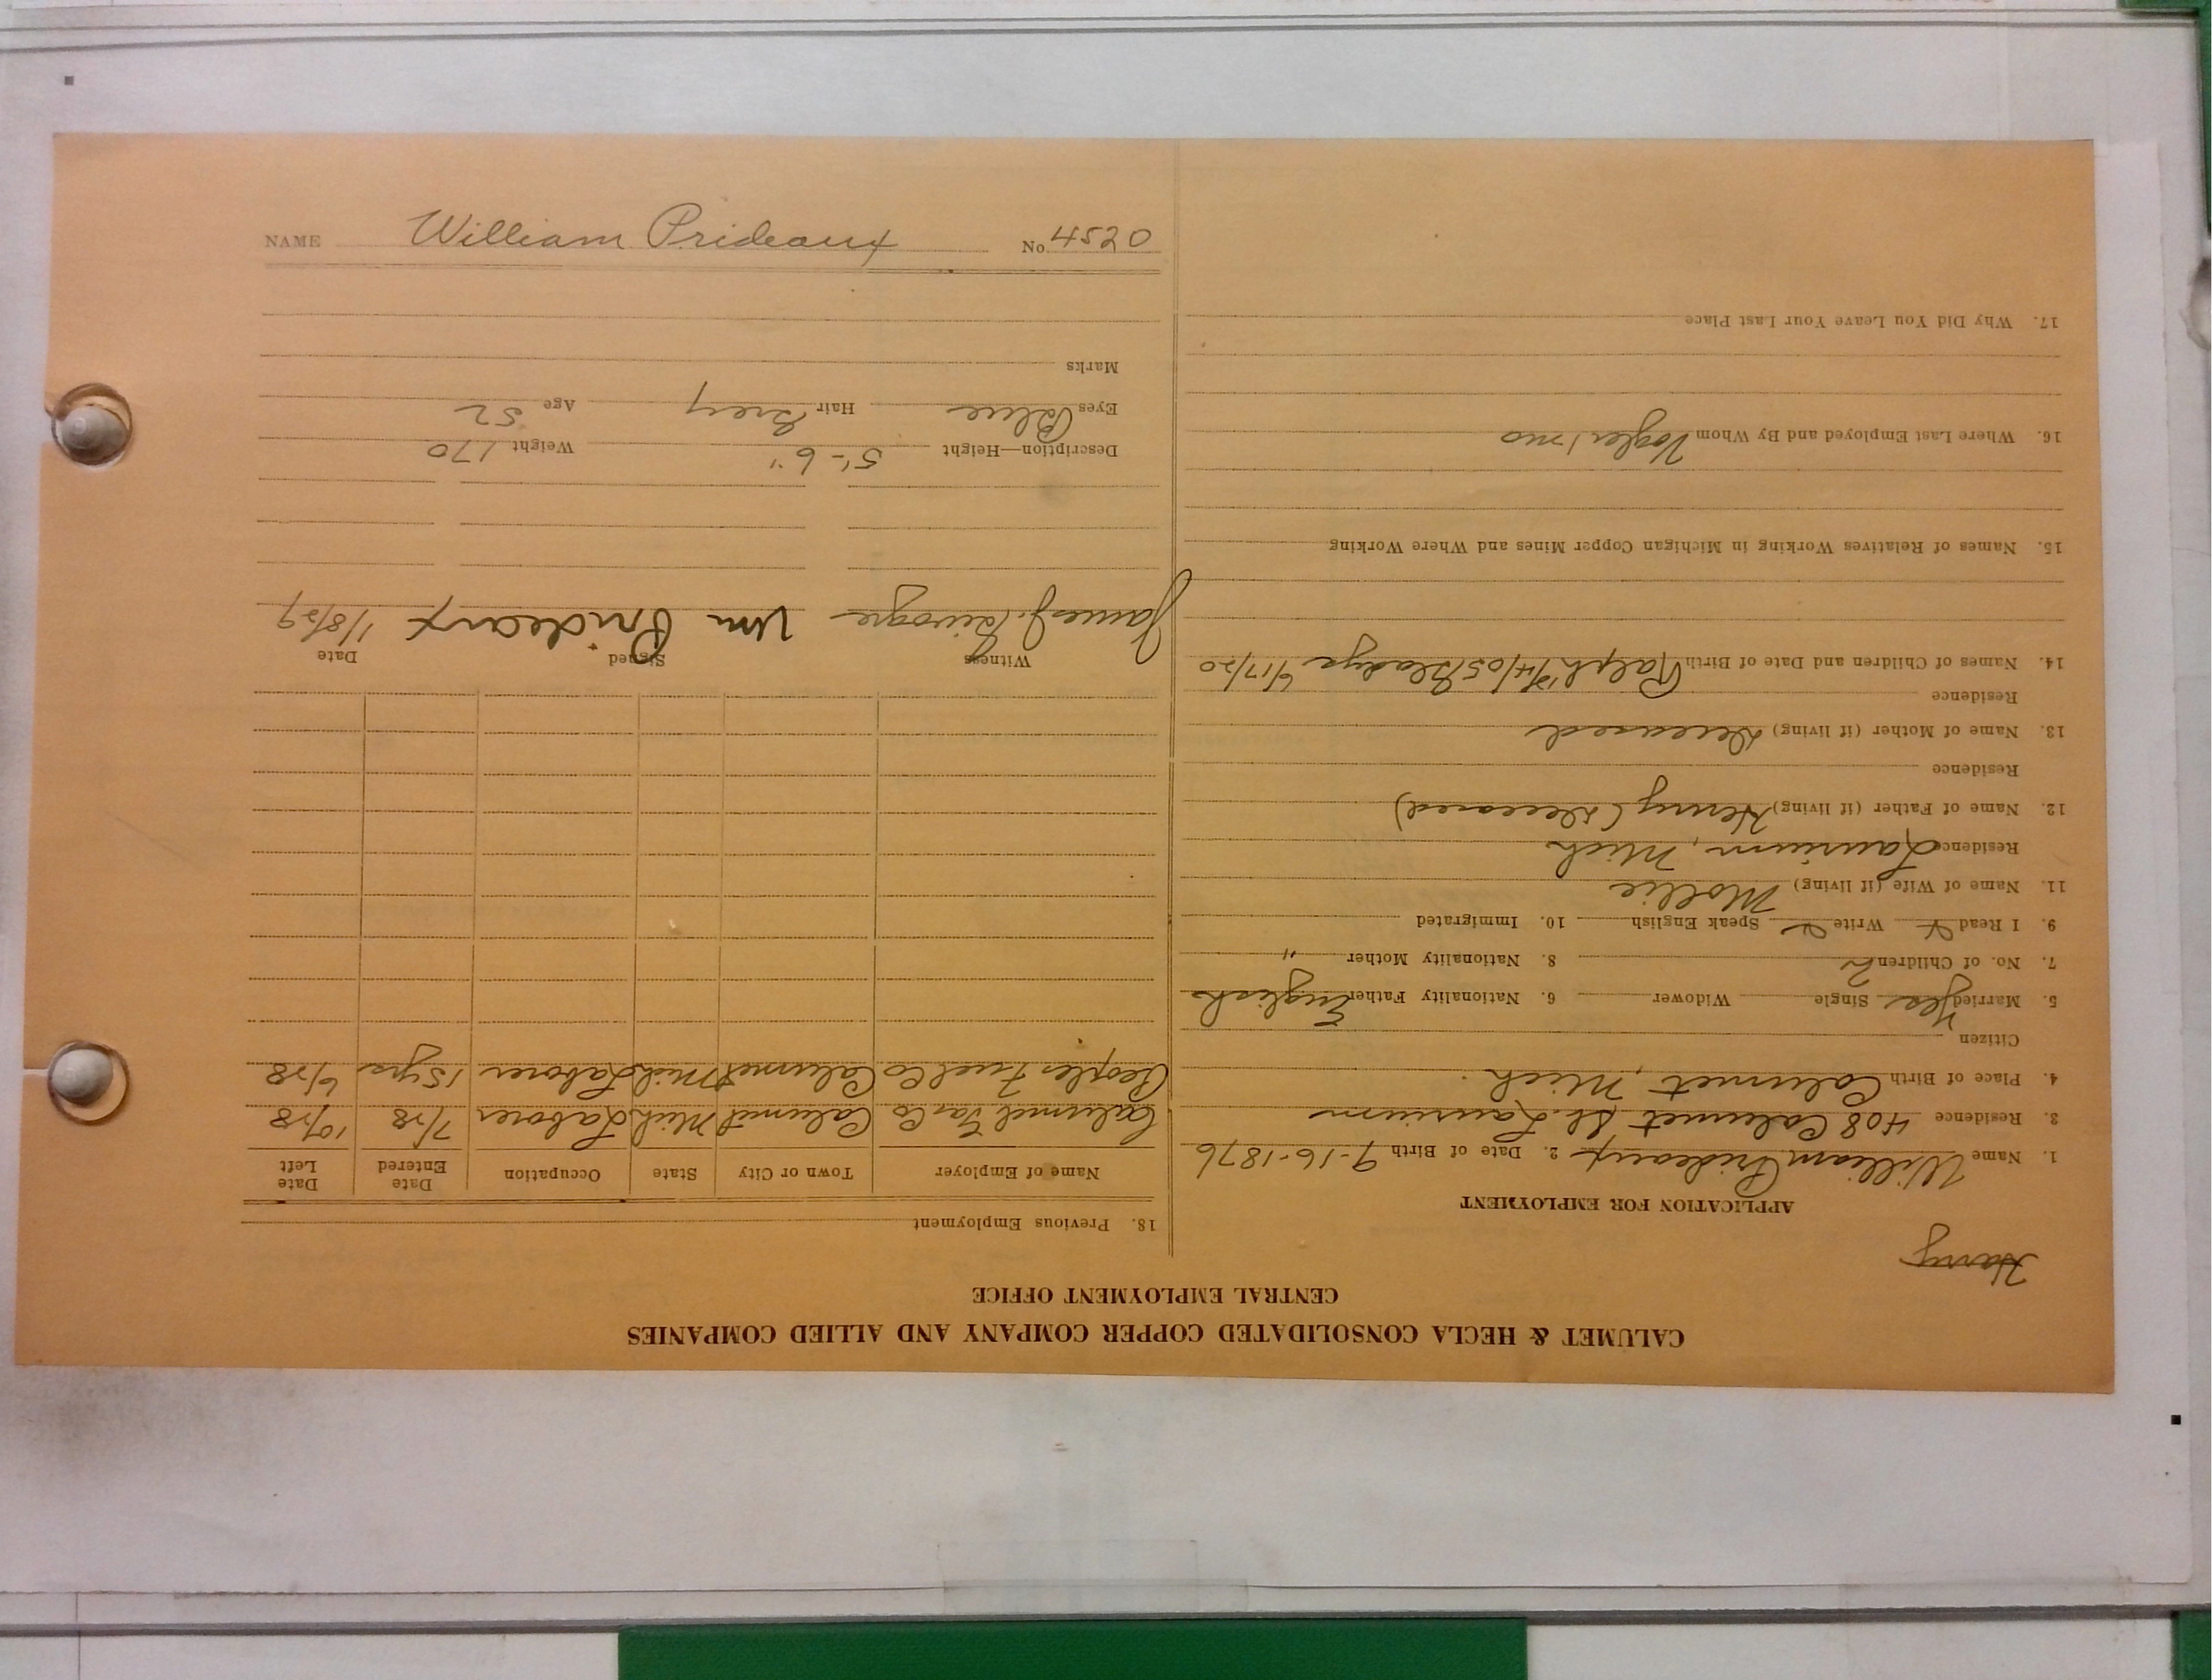 NAME William Prideaux No. 4520
CALUMET & HECLA CONSOLIDATED COPPER COMPANY AND ALLIED COMPANIES
CENTRAL EMPLOYMENT OFFICE
Harry
APPLICATION FOR EMPLOYMENT
1. Name William Prideaux 2. Date of Birth 9-16-1876
3. Residence 408 Calumet St. Laurium
4. Place of Birth Calumet, Mich.
Citizen
5. Married Yes Single Widower 6. Nationality Father English
7. No. of Children 2 8. Nationality Mother "
9. I Read Write Speak English 10. Immigrated
11. Name of Wife (if living) Mollie
Residence Laurium, Mich
12. Name of Father (if living) Henry (Deceased)
Residence
13. Name of Mother (if living) Deceased
Residence
14. Names of Children and Date of Birth Ralph /05 Gladys 6/17/20
15. Names of Relatives Working in Michigan Copper Mines and Where Working
16. Where Last Employed and By Whom 1 mo
17. Why Did You Leave Your Last Place
18. Previous Employment
Name of Employer Town or City State Occupation Date Entered Date Left
Calumet Gas Co Calumet Mich Laborer 7/28 10/28
Peoples Fuel Co Calumet Mich Laborer 15 yrs 6/28
Witness Signed Date
James J. Wm Prideaux 1/8/29
Description—Height 5'-6" Weight 170
Eyes Blue Hair Grey Age 52
Marks